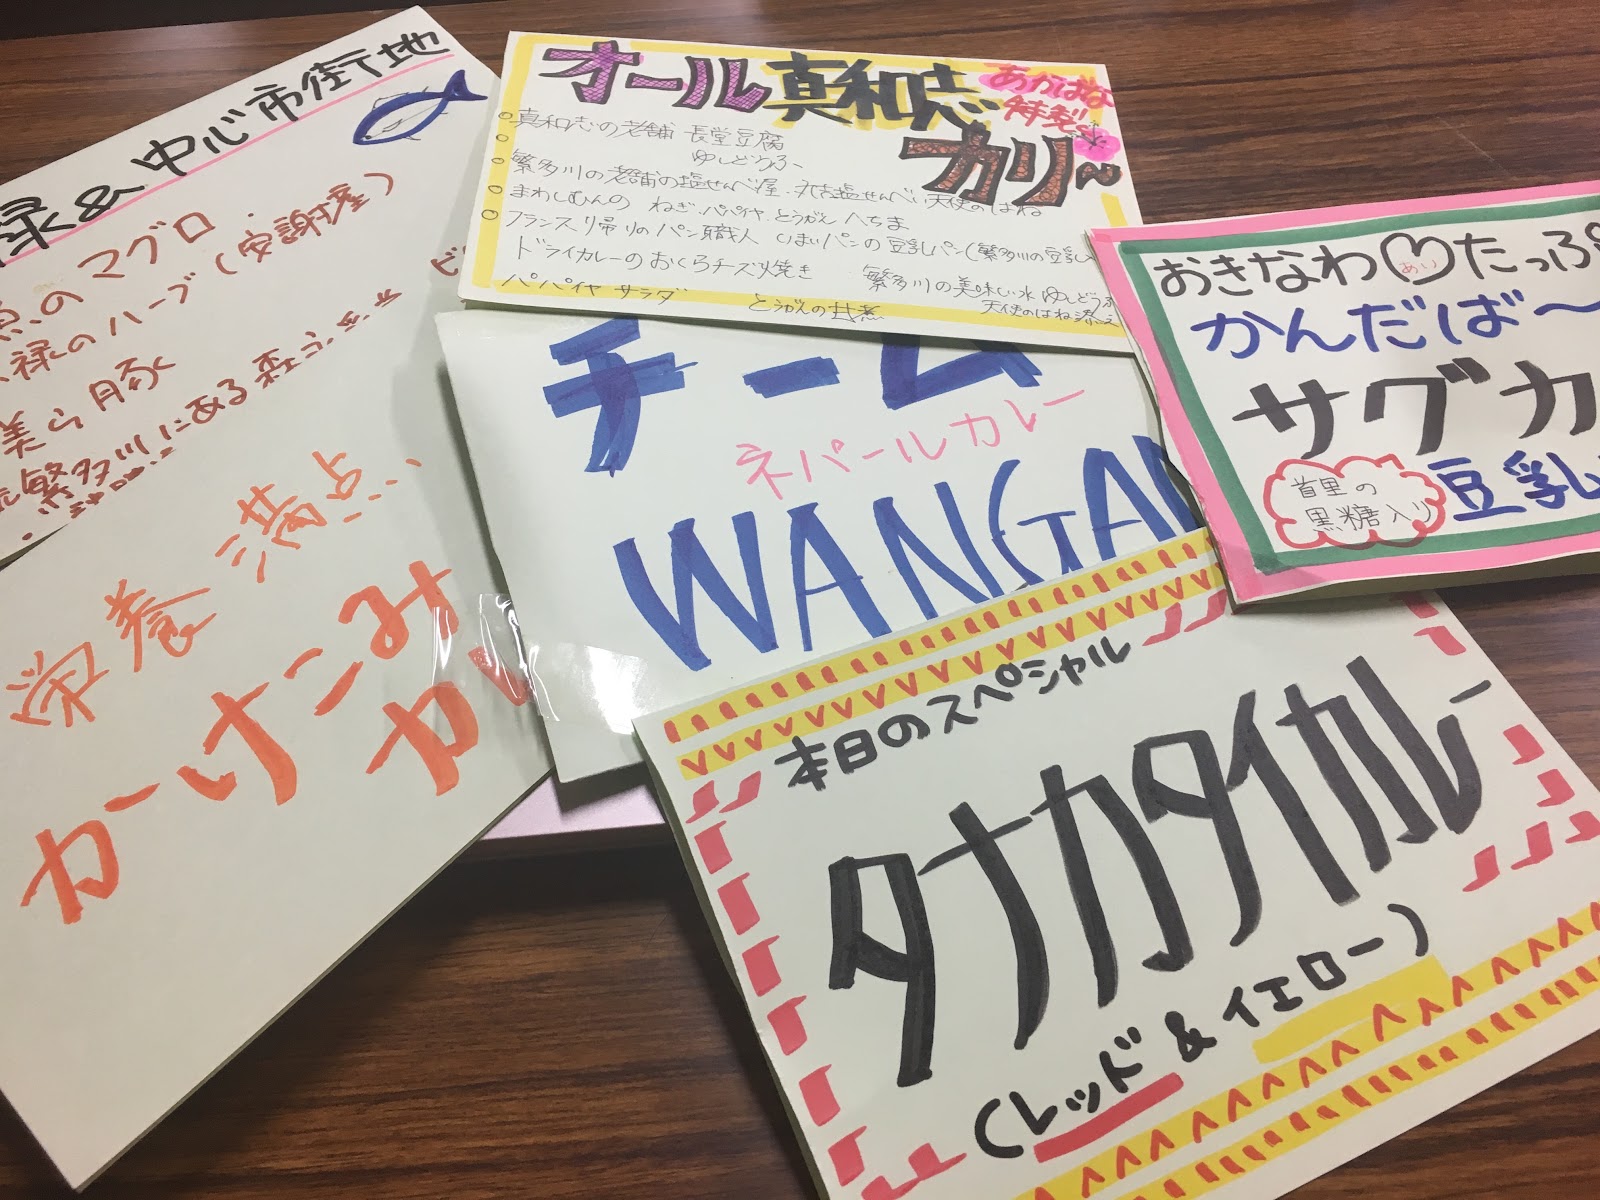 禄&中心市街地
のマグロ
禄のハーブ(安謝産)
美ら豚
繁多川にある森
栄養満点
かーけこみ
カレ
オール真和志
あかばな
特製
カリ〜
真和志の老舗 長堂豆腐
ゆしどうふ、
繁多川の老舗の塩せんべ屋・丸吉塩せんべい天使のはね
まわしむんの ねぎ・パパイヤ・とうがん へちま
フランスリ帰りのパン職人 いまいパンの豆乳パン(繁多川の豆乳
ドライカレーのおくらチーズ焼き 繁多川の美味しい水 ゆしどうふ
パパイヤ サラダ とうがんの煮 天使のはね添え
チーム
ネパールカレー
WANGA
おきなわ あい たっぷ
かんだば〜
サグカ
首里の
黒糖入り
豆乳
本日のスペシャル
タナカタイカレー
(レッド&イエロー)